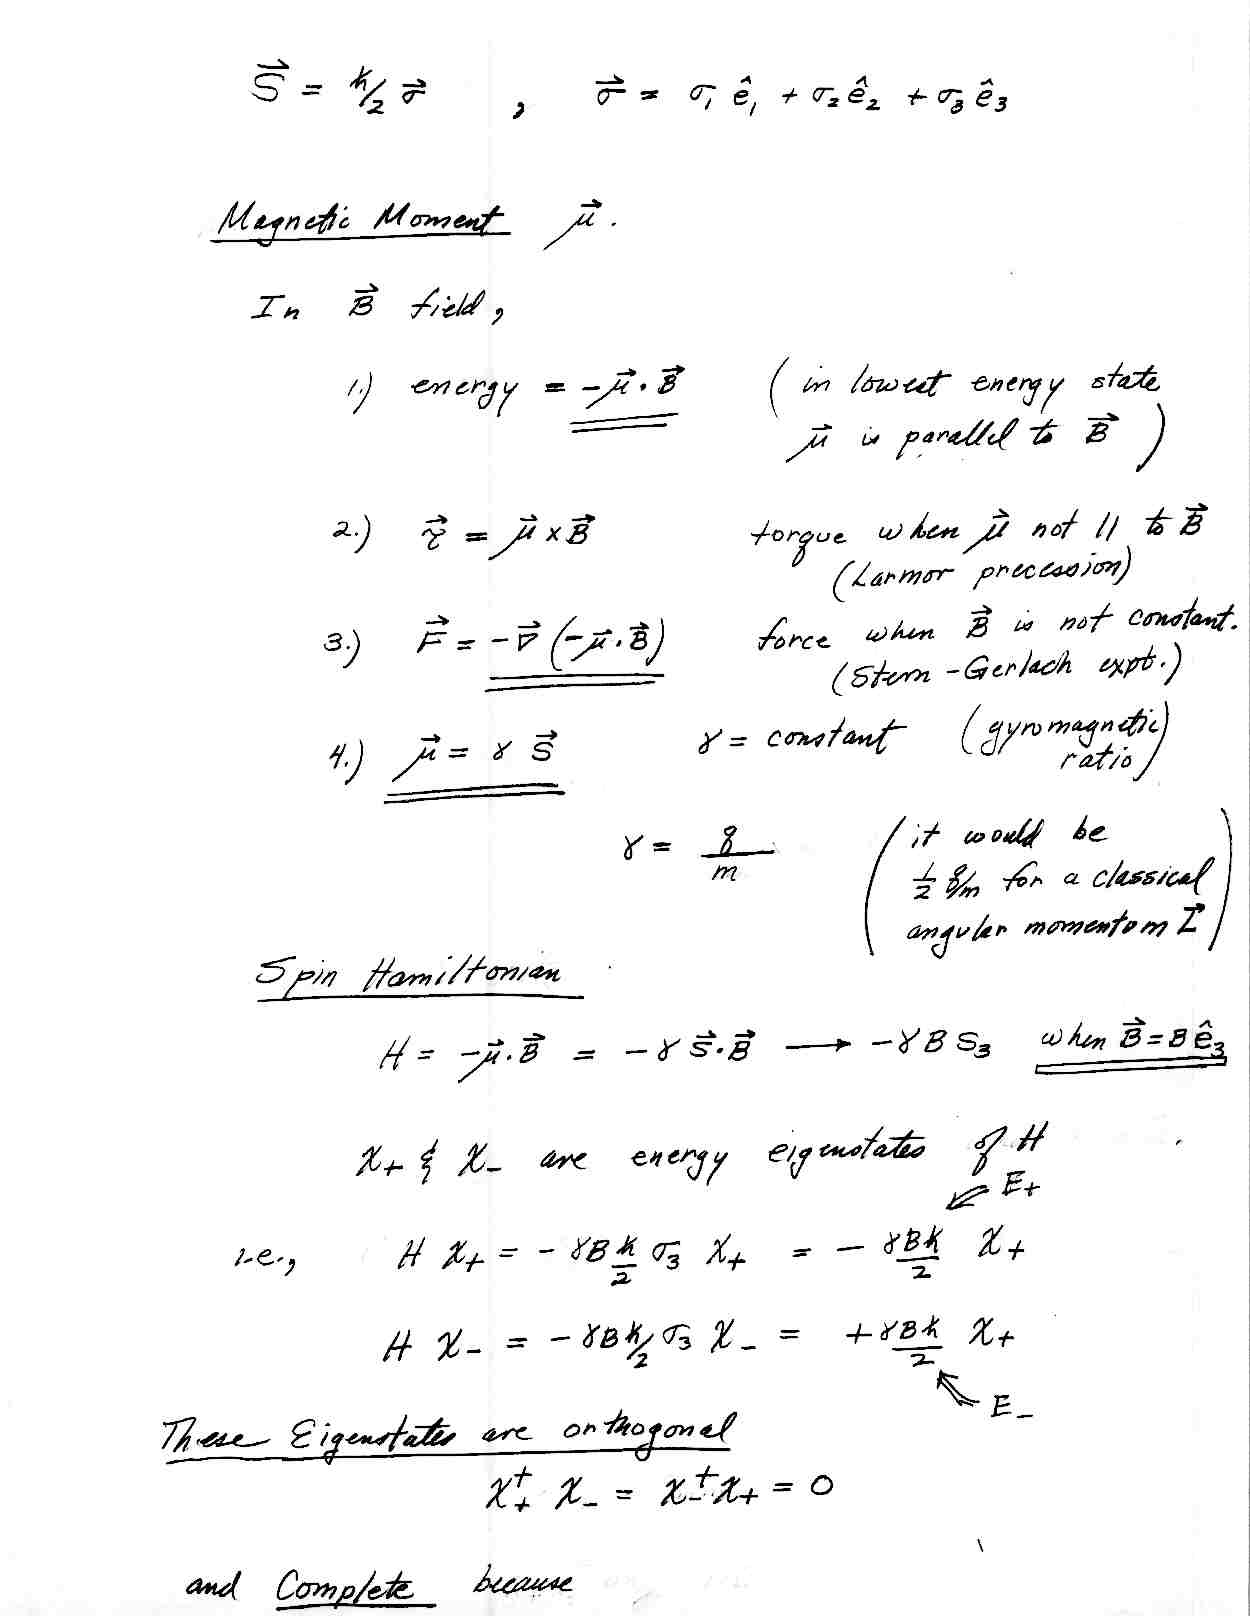 S⃗ = ħ/2 σ⃗ , σ⃗ = σ₁ ê₁ + σ₂ ê₂ + σ₃ ê₃
Magnetic Moment μ⃗ .
In B⃗ field,
1.) energy = -μ⃗ · B⃗ ( in lowest energy state
μ⃗ is parallel to B⃗ )
2.) τ⃗ = μ⃗ × B⃗ torque when μ⃗ not || to B⃗
(Larmor precession)
3.) F⃗ = -∇⃗ (-μ⃗ · B⃗) force when B⃗ is not constant.
(Stern - Gerlach expt.)
4.) μ⃗ = γ S⃗ γ = constant (gyromagnetic
ratio)
γ = q/m ( it would be
½ q/m for a classical
angular momentom L⃗ )
Spin Hamiltonian
H = -μ⃗ · B⃗ = -γ S⃗ · B⃗ ⟶ -γ B S₃ when B⃗ = B ê₃
χ₊ & χ₋ are energy eigenstates of H
E₊
i.e., H χ₊ = - γB ħ/2 σ₃ χ₊ = - γBħ/2 χ₊
H χ₋ = - γB ħ/2 σ₃ χ₋ = + γBħ/2 χ₊
E₋
These Eigenstates are orthogonal
χ₊† χ₋ = χ₋† χ₊ = 0
and Complete because